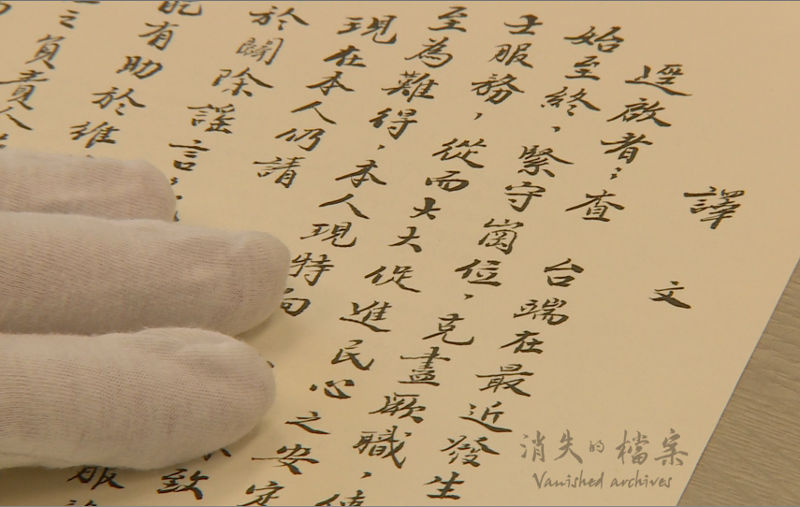 譯文
逕啟者：查 台端在最近發生
始至終，緊守崗位，克盡厥職，使
士服務，從而大大促進民心之安定
至為難得，本人現特向 致
現在本人仍請 服
於闢除謠言
有助於維
之負責人
消失的檔案
Vanished archives